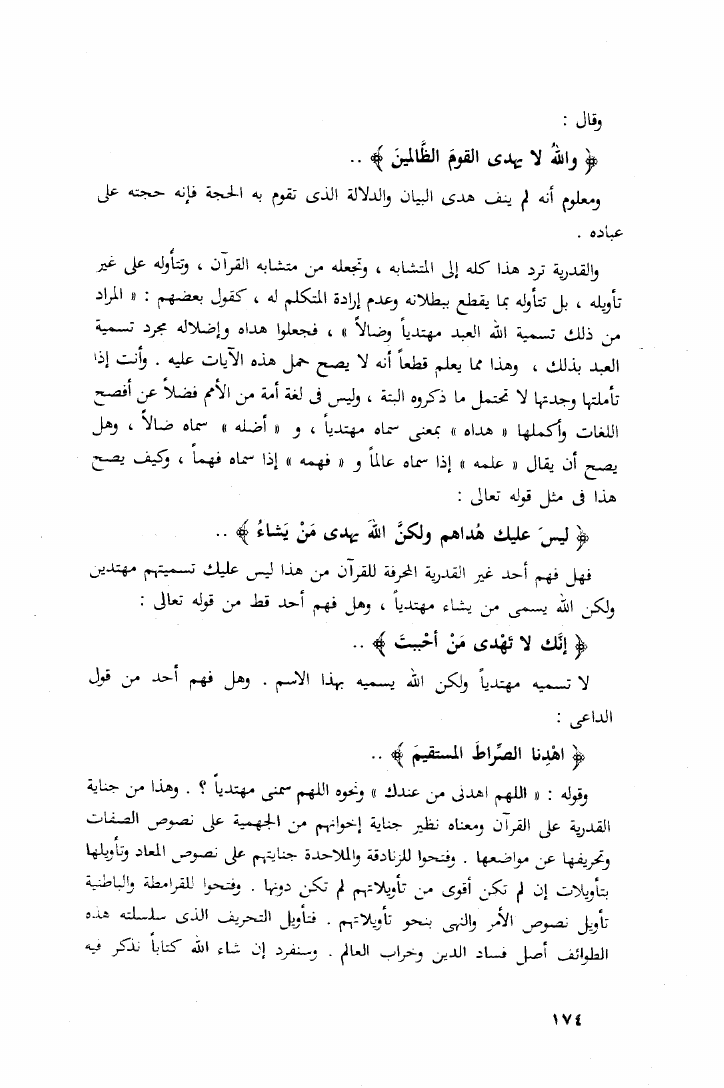 وقال :
﴿ واللهُ لا يهدى القومَ الظَّالمينَ ﴾ ..
ومعلوم أنه لم ينف هدى البيان والدلالة الذى تقوم به الحجة فإنه حجته على
عباده .
والقدرية ترد هذا كله إلى المتشابه ، وتجعله من متشابه القرآن ، وتتأوله على غير
تأويله ، بل تتأوله بما يقطع ببطلانه وعدم إرادة المتكلم له ، كقول بعضهم : « المراد
من ذلك تسمية الله العبد مهتدياً وضالاً » ، فجعلوا هداه وإضلاله مجرد تسمية
العبد بذلك ، وهذا مما يعلم قطعاً أنه لا يصح حمل هذه الآيات عليه . وأنت إذا
تأملتها وجدتها لا تحتمل ما ذكروه البتة ، وليس فى لغة أمة من الأمم فضلاً عن أفصح
اللغات وأكملها « هداه » بمعنى سماه مهتدياً ، و « أضله » سماه ضالاً ، وهل
يصح أن يقال « علمه » إذا سماه عالماً و « فهمه » إذا سماه فهماً ، وكيف يصح
هذا فى مثل قوله تعالى :
﴿ ليسَ عليك هُداهم ولكنَّ اللهَ يهدى مَنْ يَشاءُ ﴾ ..
فهل فهم أحد غير القدرية المحرفة للقرآن من هذا ليس عليك تسميتهم مهتدين
ولكن الله يسمى من يشاء مهتدياً ، وهل فهم أحد قط من قوله تعالى :
﴿ إنَّك لا تَهْدى مَنْ أحْببتَ ﴾ ..
لا تسميه مهتدياً ولكن الله يسميه بهذا الاسم . وهل فهم أحد من قول
الداعى :
﴿ اهْدِنا الصِّراطَ المستقيمَ ﴾ ..
وقوله : « اللهم اهدنى من عندك » ونحوه اللهم سمنى مهتدياً ؟ . وهذا من جناية
القدرية على القرآن ومعناه نظير جناية إخوانهم من الجهمية على نصوص الصفات
وتحريفها عن مواضعها . وفتحوا للزنادقة والملاحدة جنايتهم على نصوص المعاد وتأويلها
بتأويلات إن لم تكن أقوى من تأويلاتهم لم تكن دونها . وفتحوا للقرامطة والباطنية
تأويل نصوص الأمر والنهى بنحو تأويلاتهم . فتأويل التحريف الذى سلسلته هذه
الطوائف أصل فساد الدين وخراب العالم . وسنفرد إن شاء الله كتاباً نذكر فيه
١٧٤